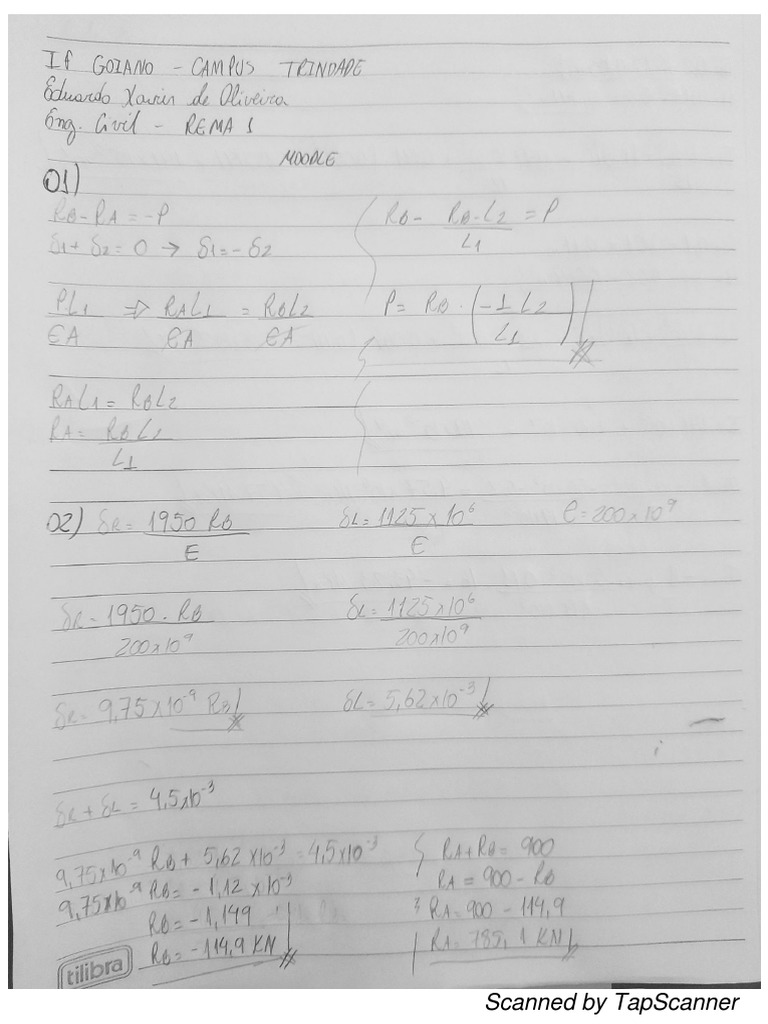 IF GOIANO - CAMPUS TRINDADE
Eduardo Xavier de Oliveira
Eng. Civil - REMA 1
MOODLE
01)
RB - RA = -P
δ1 + δ2 = 0 → δ1 = - δ2
PL1/EA ⇒ RAL1/EA = RBL2/EA
RAL1 = RBL2
RA = RBL2/L1
RB - RB-L2/L1 = P
P = RB · (-1 L2/L1)
02) δR = 1950 RB/E δL = 1125 x 10⁶/E E = 200 x 10⁹
δR = 1950 · RB/200x10⁹ δL = 1125x10⁶/200x10⁹
δR = 9,75x10⁻⁹ RB δL = 5,62x10⁻³
δR + δL = 4,5x10⁻³
9,75x10⁻⁹ RB + 5,62x10⁻³ = 4,5x10⁻³
9,75x10⁻⁹ RB = - 1,12 x 10⁻³
RB = - 1,149
RB = -114,9 KN
RA + RB = 900
RA = 900 - RB
RA = 900 - 114,9
RA = 785,1 KN
tilibra
Scanned by TapScanner